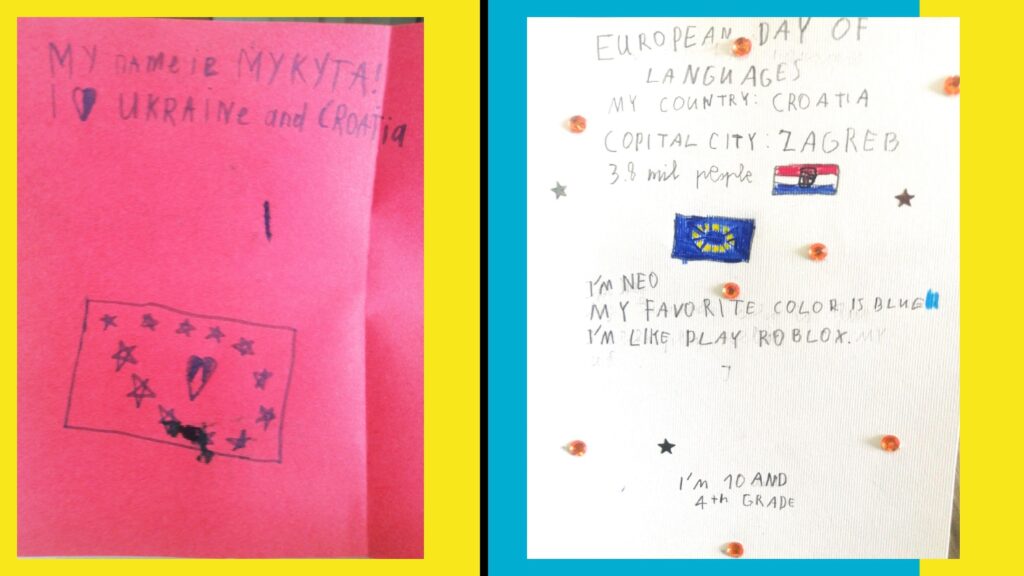 MY nameis MYKYTA!
I UKRAINE and CROATia
EUROPEAN DAY OF
LANGUAGES
MY COUNTRY: CROATIA
COPITAL CITY: ZAGREB
3.8 mil people
I'M NEO
MY FAVORITE COLOR IS BLUE
I'M LIKE PLAY ROBLOX.
I'M 10 AND
4th GRADE